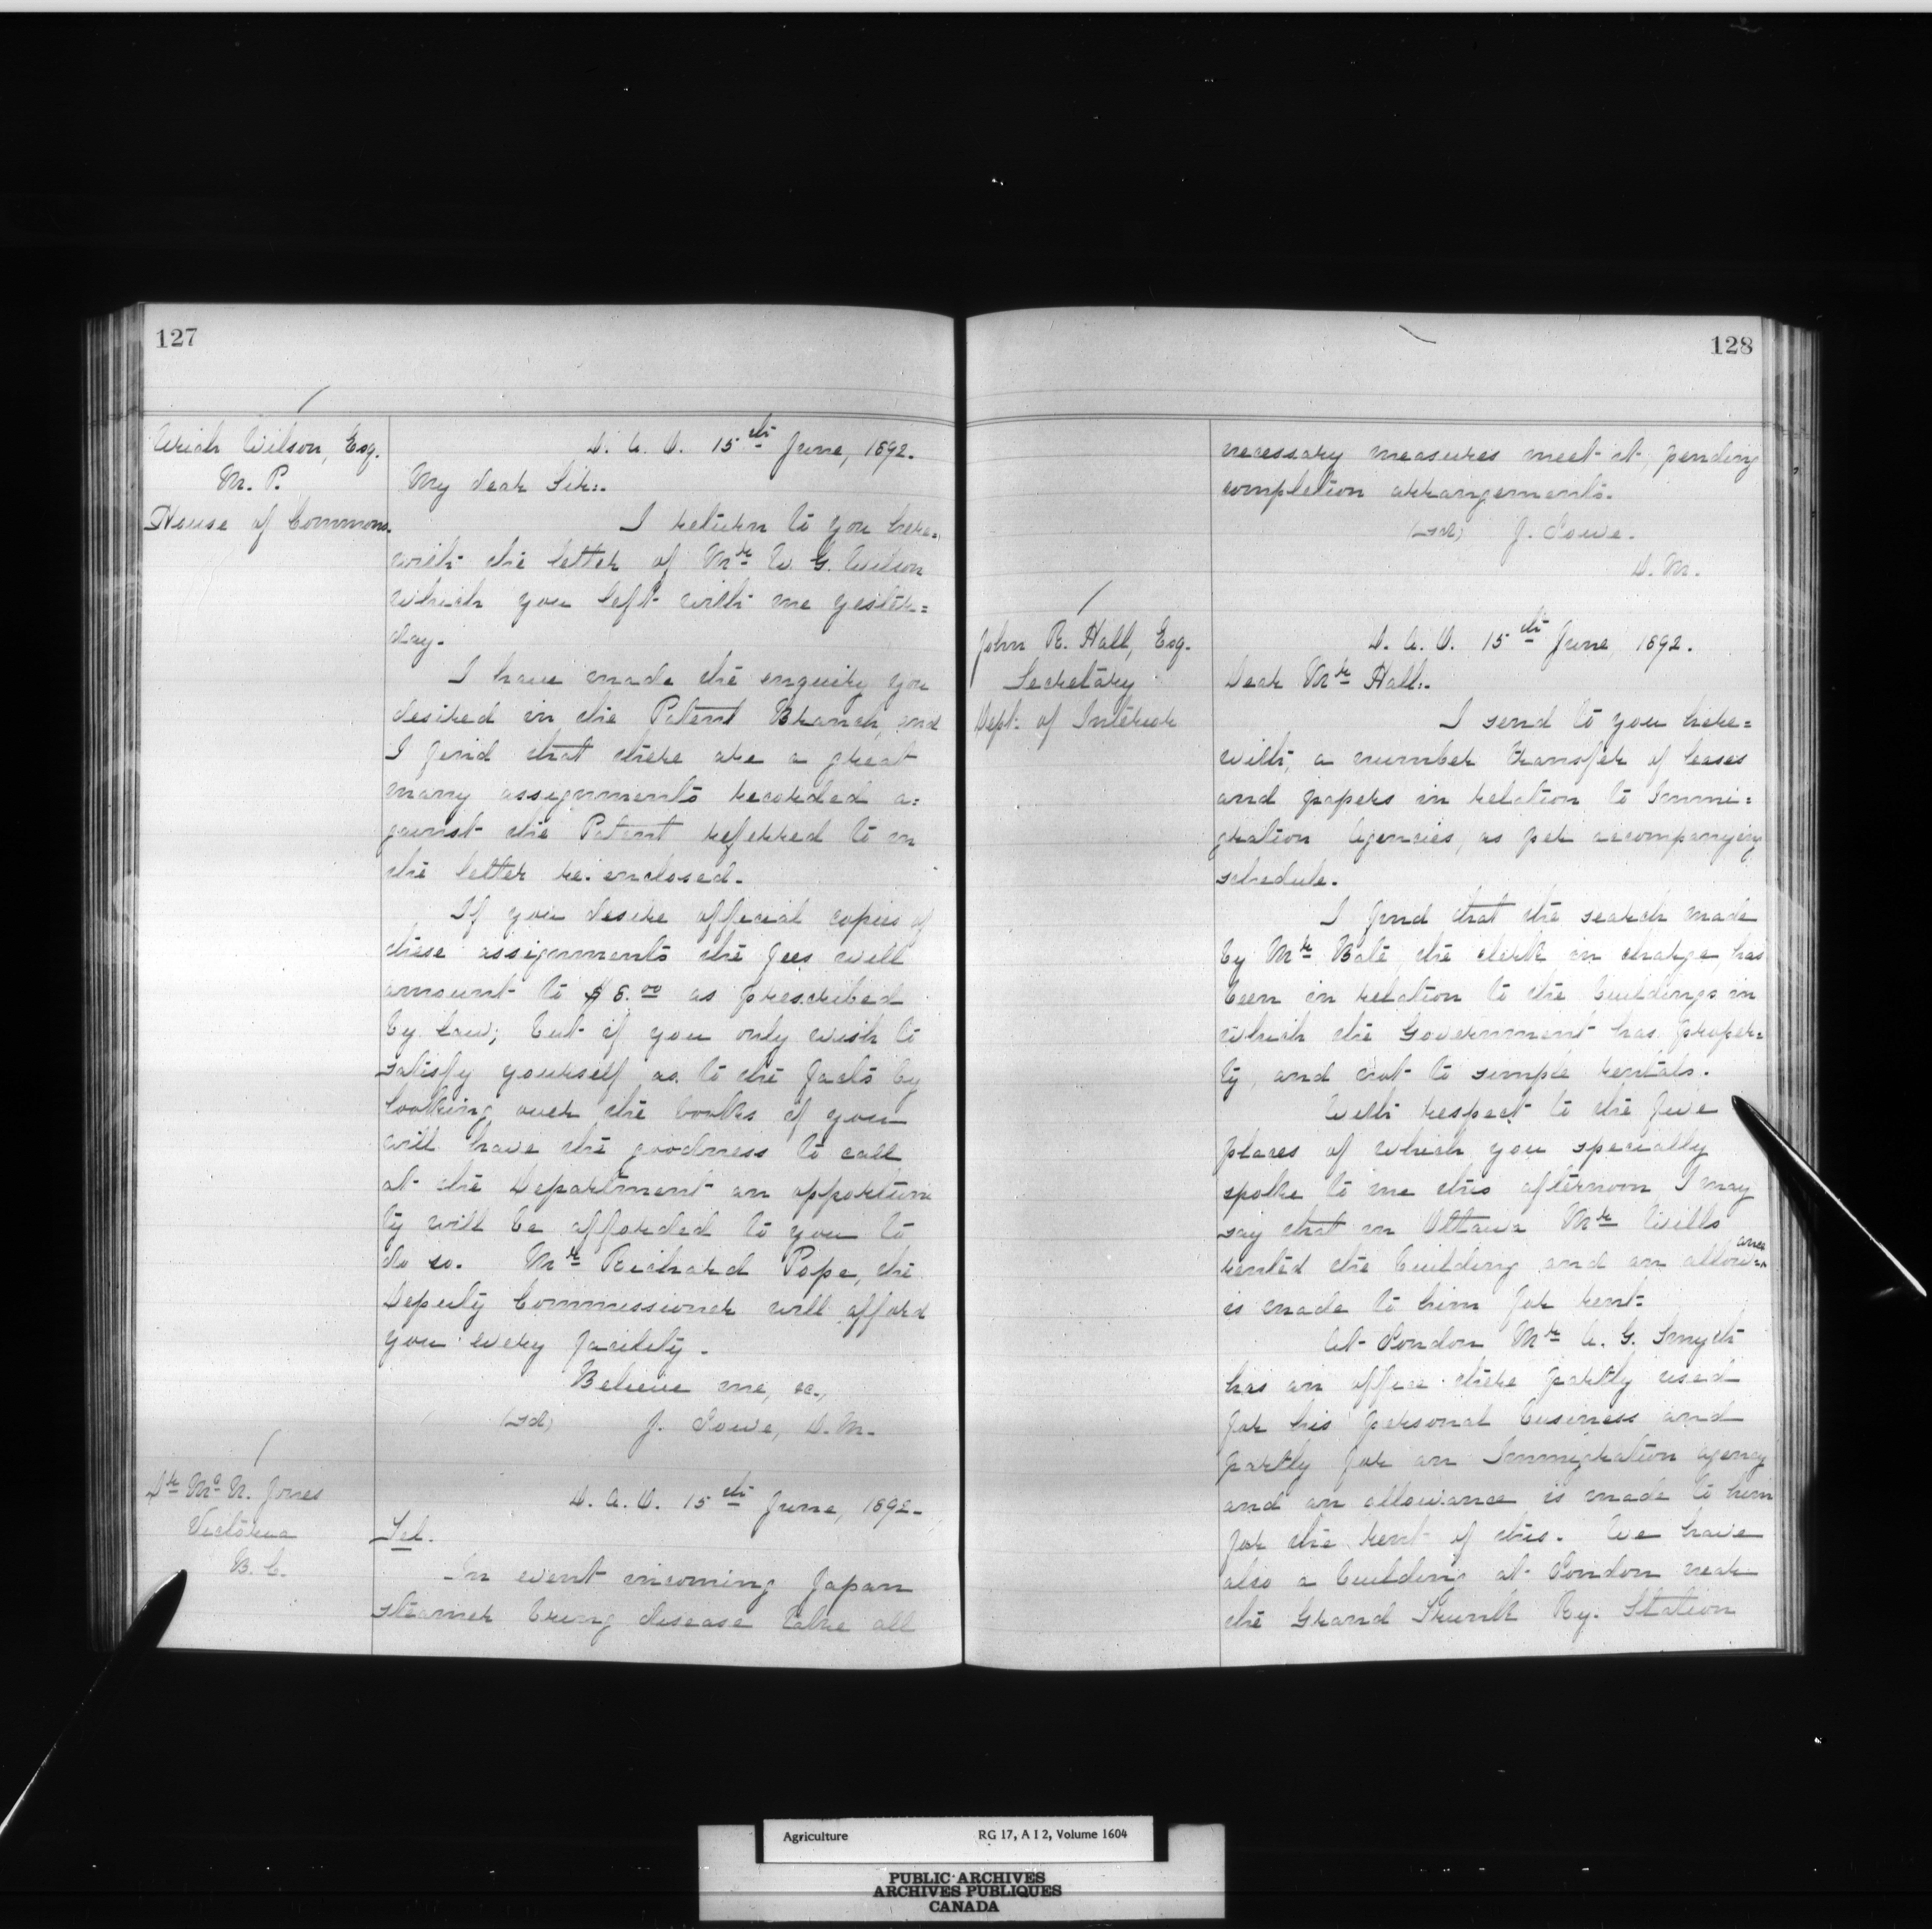 127
Uriah Wilson, Esq.
M. P.
House of Commons.
D. A. O. 15th June, 1892.
My dear Sir:.
I return to you here=
with the letter of Mr W. G. Wilson
which you left with me yester=
day.
I have made the enquiry you
desired in the Patent Branch, and
I find that there are a great
many assignments recorded a=
gainst the Patent referred to in
the letter re-enclosed.
If you desire official copies of
these assignments the fees will
amount to $8.00 as prescribed
by law; but if you only wish to
satisfy yourself as to the facts by
looking over the books if you
will have the goodness to call
at the Department an opportuni
ty will be afforded to you to
do so. Mr Richard Pope, the
Deputy Commissioner will afford
you every facility.
Believe me, &c.,
(Sd) J. Lowe, D.M.
Dr McN. Jones
Victoria
B. C.
D. A. O. 15th June, 1892.
Tel.
In event incoming Japan
steamer bring disease take all
128
necessary measures meet it, pending
completion arrangements.
(Sd) J. Lowe.
D. M.
John R. Hall, Esq.
Secretary
Dept. of Interior
D. A. O. 15th June, 1892.
Dear Mr Hall:.
I send to you here=
with, a number transfer of leases
and papers in relation to Immi=
gration Agencies, as per accompanying
schedule.
I find that the search made
by Mr Bate, the clerk in charge, has
been in relation to the buildings in
which the Government has proper=
ty, and not to simple rentals.
With respect to the five
places of which you specially
spoke to me this afternoon I may
say that in Ottawa Mr Wills
rented the building and an allowance
is made to him for rent.
At London Mr A. G. Smyth
has an office there partly used
for his personal business and
partly for an Immigration agency
and an allowance is made to him
for the rent of this. We have
also a building at London near
the Grand Trunk Ry. Station
Agriculture RG 17, A I 2, Volume 1604
PUBLIC ARCHIVES
ARCHIVES PUBLIQUES
CANADA